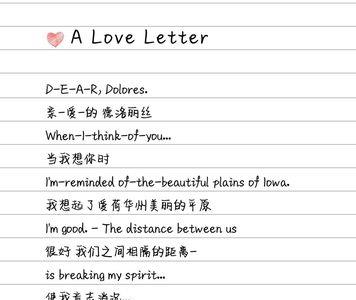 A Love Letter
D-E-A-R, Dolores.
亲-爱-的 德洛丽丝
When-I-think-of-you...
当我想你时
I'm-reminded of-the-beautiful plains of Iowa.
我想起了爱荷华州美丽的平原
I'm good. - The distance between us
很好 我们之间相隔的距离-
is breaking my spirit...
使我意志消沉...